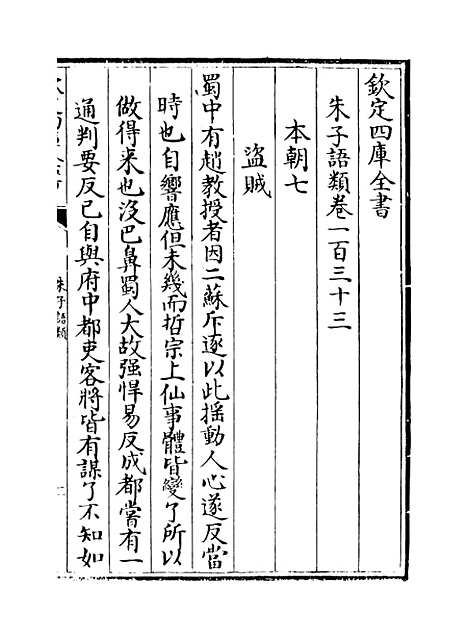 欽定四庫全書
朱子語類卷一百三十三
本朝七
盜賊
蜀中有趙教授者因二蘇斥逐以此揺動人心遂反當
時也自響應但未幾而哲宗上仙事體皆變了所以
做得来也没巴鼻蜀人大故强悍易反成都嘗有一
通判要反已自與府中都吏客將皆有謀了不知如
朱子語類